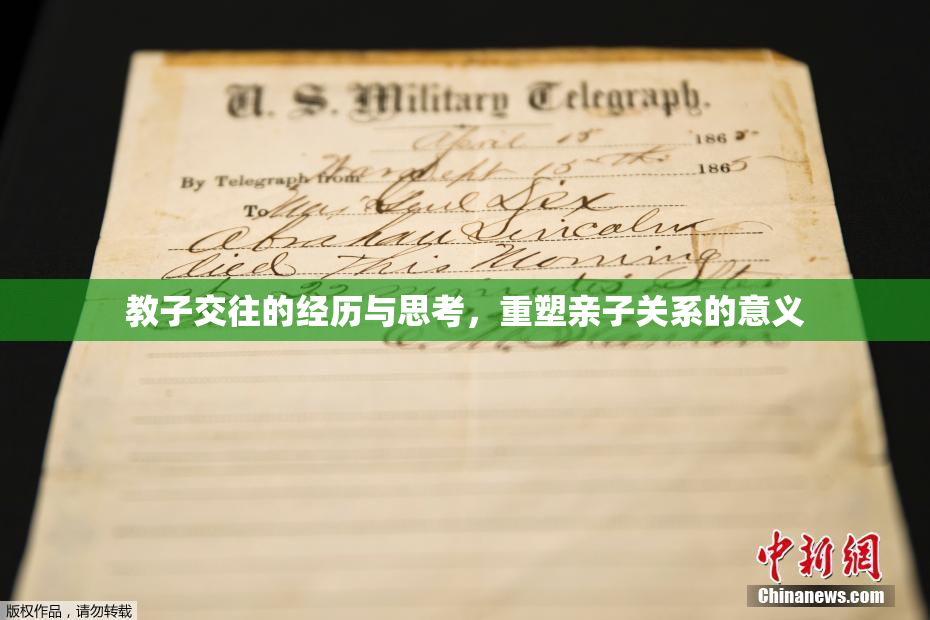 U. S. Military Telegraph.
April 15 1865
By Telegraph from War Dept 15th 1865
To Maj Genl Dix
Abraham Lincoln
died This Morning
22 minutes after
教子交往的经历与思考，重塑亲子关系的意义
中新网
Chinanews.com
版权作品，请勿转载